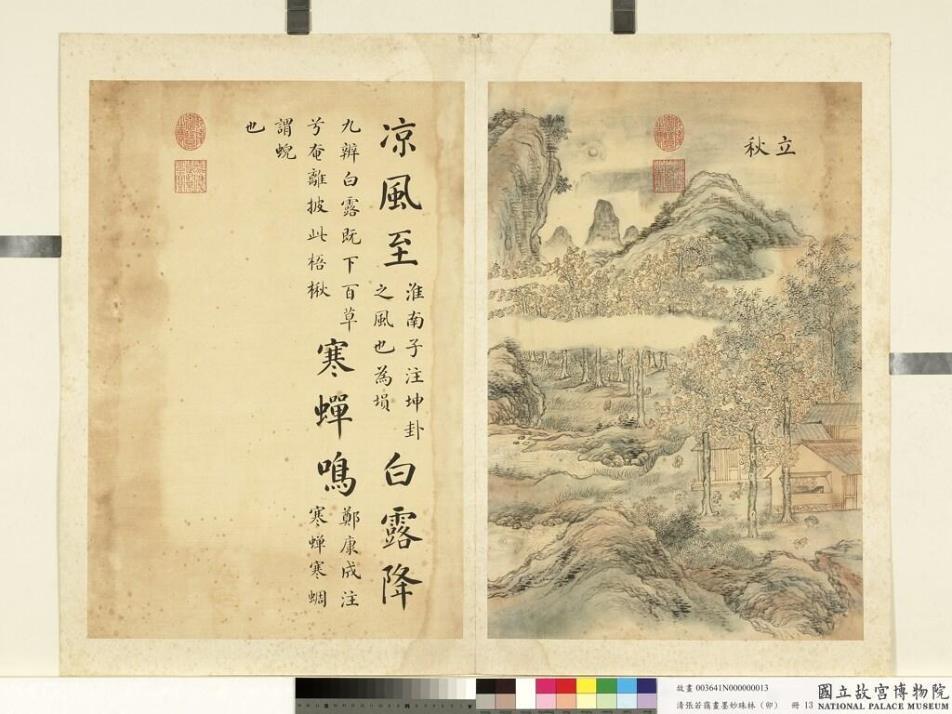 立秋
凉風至
淮南子注坤卦
之風也為塤
白露降
九辨白露既下百草
兮奄離披此梧楸
寒蟬鳴
鄭康成注
寒蟬寒蜩
謂蜺
也
故畫 003641N000000013
清張若靄畫墨妙珠林（卯） 冊 13
國立故宮博物院
NATIONAL PALACE MUSEUM